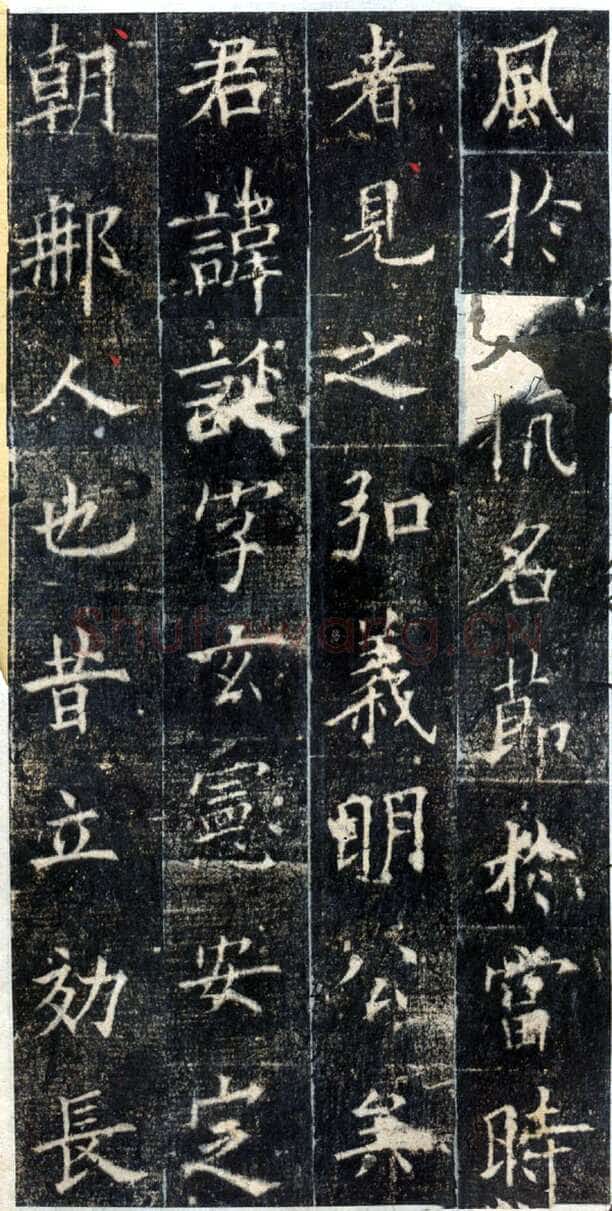 風於抗名莭於當時
者見之弘義明公矣
君諱誕字玄憲安定
朝郍人也昔立効長
Shufawang.CN